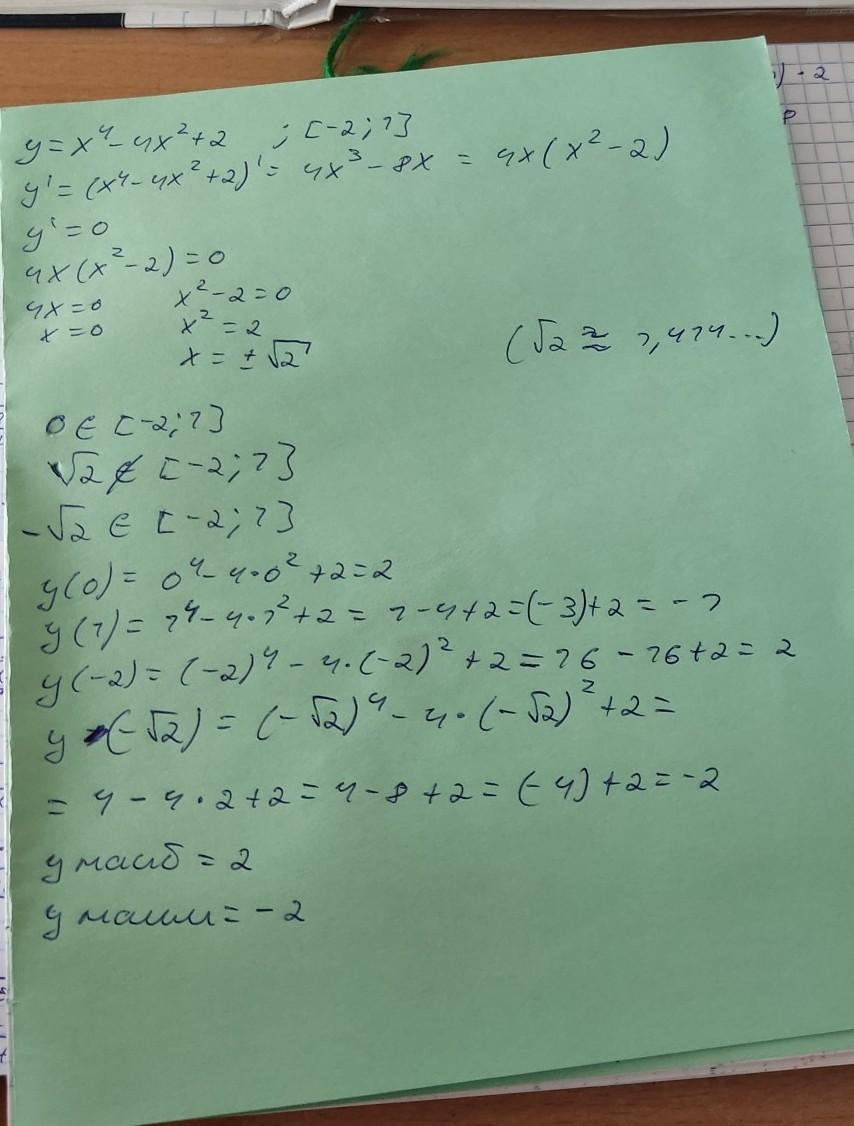 y = x⁴ - 4x² + 2 ; [-2; 1]
y' = (x⁴ - 4x² + 2)' = 4x³ - 8x = 4x(x² - 2)
y' = 0
4x(x² - 2) = 0
4x = 0 x² - 2 = 0
x = 0 x² = 2
x = ±√2 (√2 ≈ 1,414...)
0 ∈ [-2; 1]
√2 ∉ [-2; 1]
-√2 ∈ [-2; 1]
y(0) = 0⁴ - 4·0² + 2 = 2
y(1) = 1⁴ - 4·1² + 2 = 1 - 4 + 2 = (-3) + 2 = -1
y(-2) = (-2)⁴ - 4·(-2)² + 2 = 16 - 16 + 2 = 2
y(-√2) = (-√2)⁴ - 4·(-√2)² + 2 =
= 4 - 4·2 + 2 = 4 - 8 + 2 = (-4) + 2 = -2
y наиб = 2
y наим = -2
) - 2